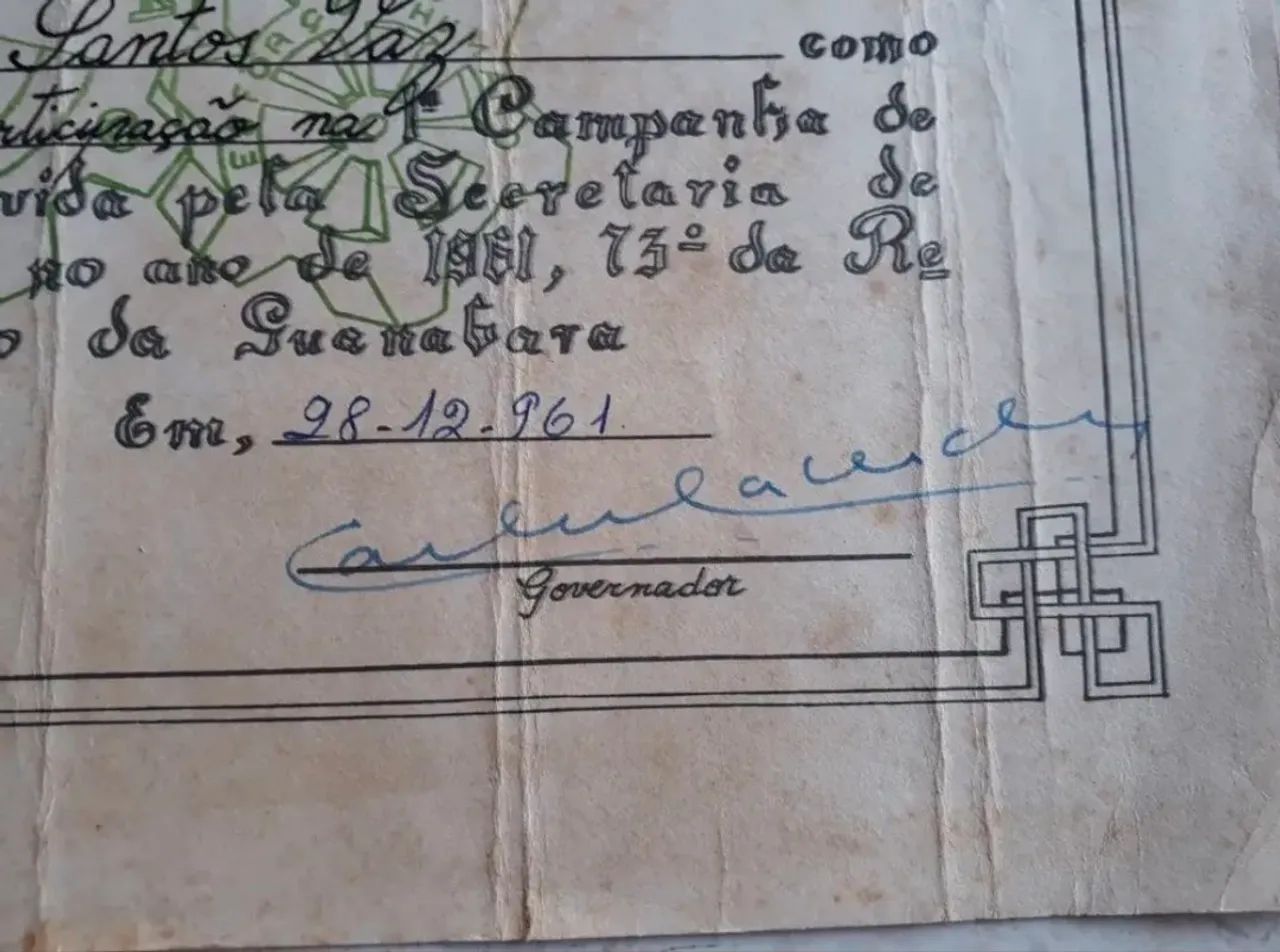 Santos Vaz como
rticipação na 1ª Campanha de
vida pela Secretaria de
no ano de 1961, 73º da Re
o da Guanabara
Em, 28-12-961.
Carlos Lacerda
Governador